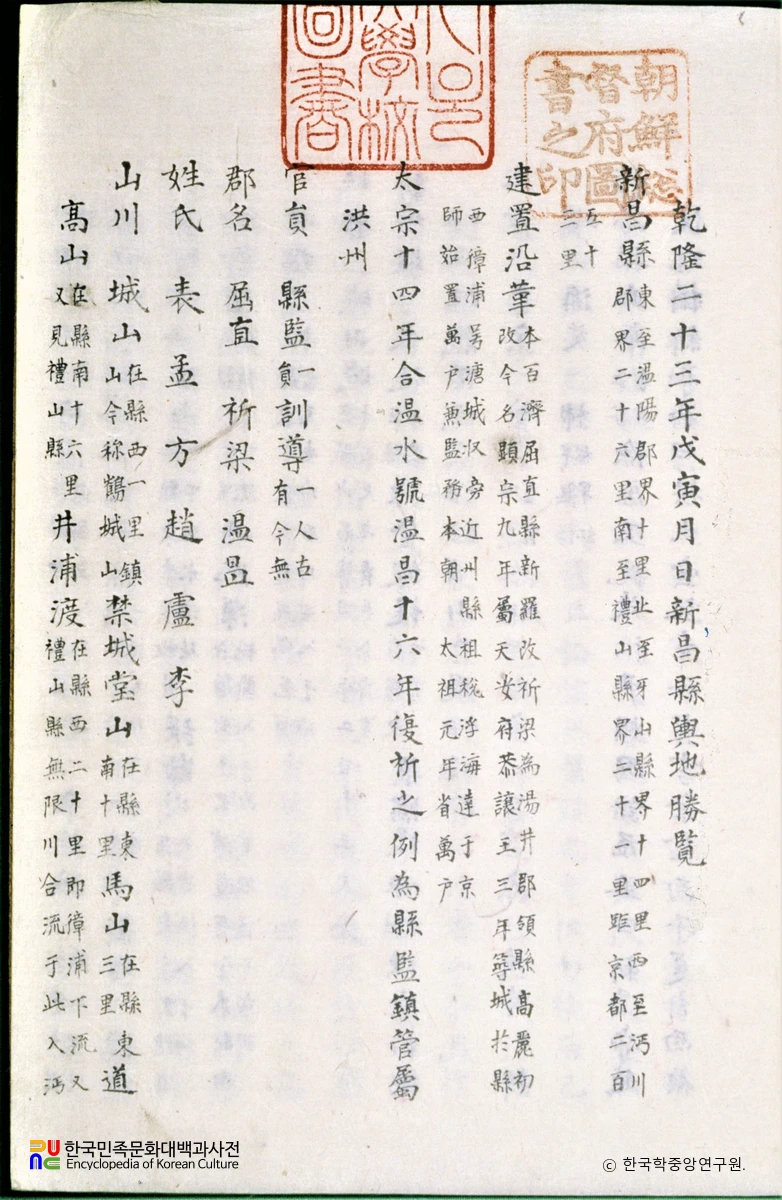 乾隆二十三年戊寅月日新昌縣輿地勝覽
新昌縣 東至溫陽郡界十里北至牙山縣界十四里西至沔川
郡界二十六里南至禮山縣界二十一里距京都二百
五十
二里
建置沿革 本百濟屈直縣新羅改祈梁為湯井郡領縣高麗初
改今名顯宗九年屬天安府恭讓王三年築城於縣
西獐浦号溏城収旁近州縣租稅浮海達于京
師始置萬户兼監務本朝 太祖元年省萬户
太宗十四年合溫水號溫昌十六年復祈之例為縣監鎮管屬
洪州
官員 縣監一員訓導一人古有今無
郡名 屈直 祈梁 溫昌
姓氏 表 孟 方 趙 盧 李
山川 城山在縣西一里鎮山今称鶴城山禁城堂山在縣東南十里馬山在縣東三里道
高山在縣南十六里又見禮山縣井浦渡在縣西二十里即獐浦下流又禮山縣無限川合流于此入沔
朝鮮総
督府圖
書之印
學校
圖書
한국민족문화대백과사전
Encyclopedia of Korean Culture
ⓒ 한국학중앙연구원.